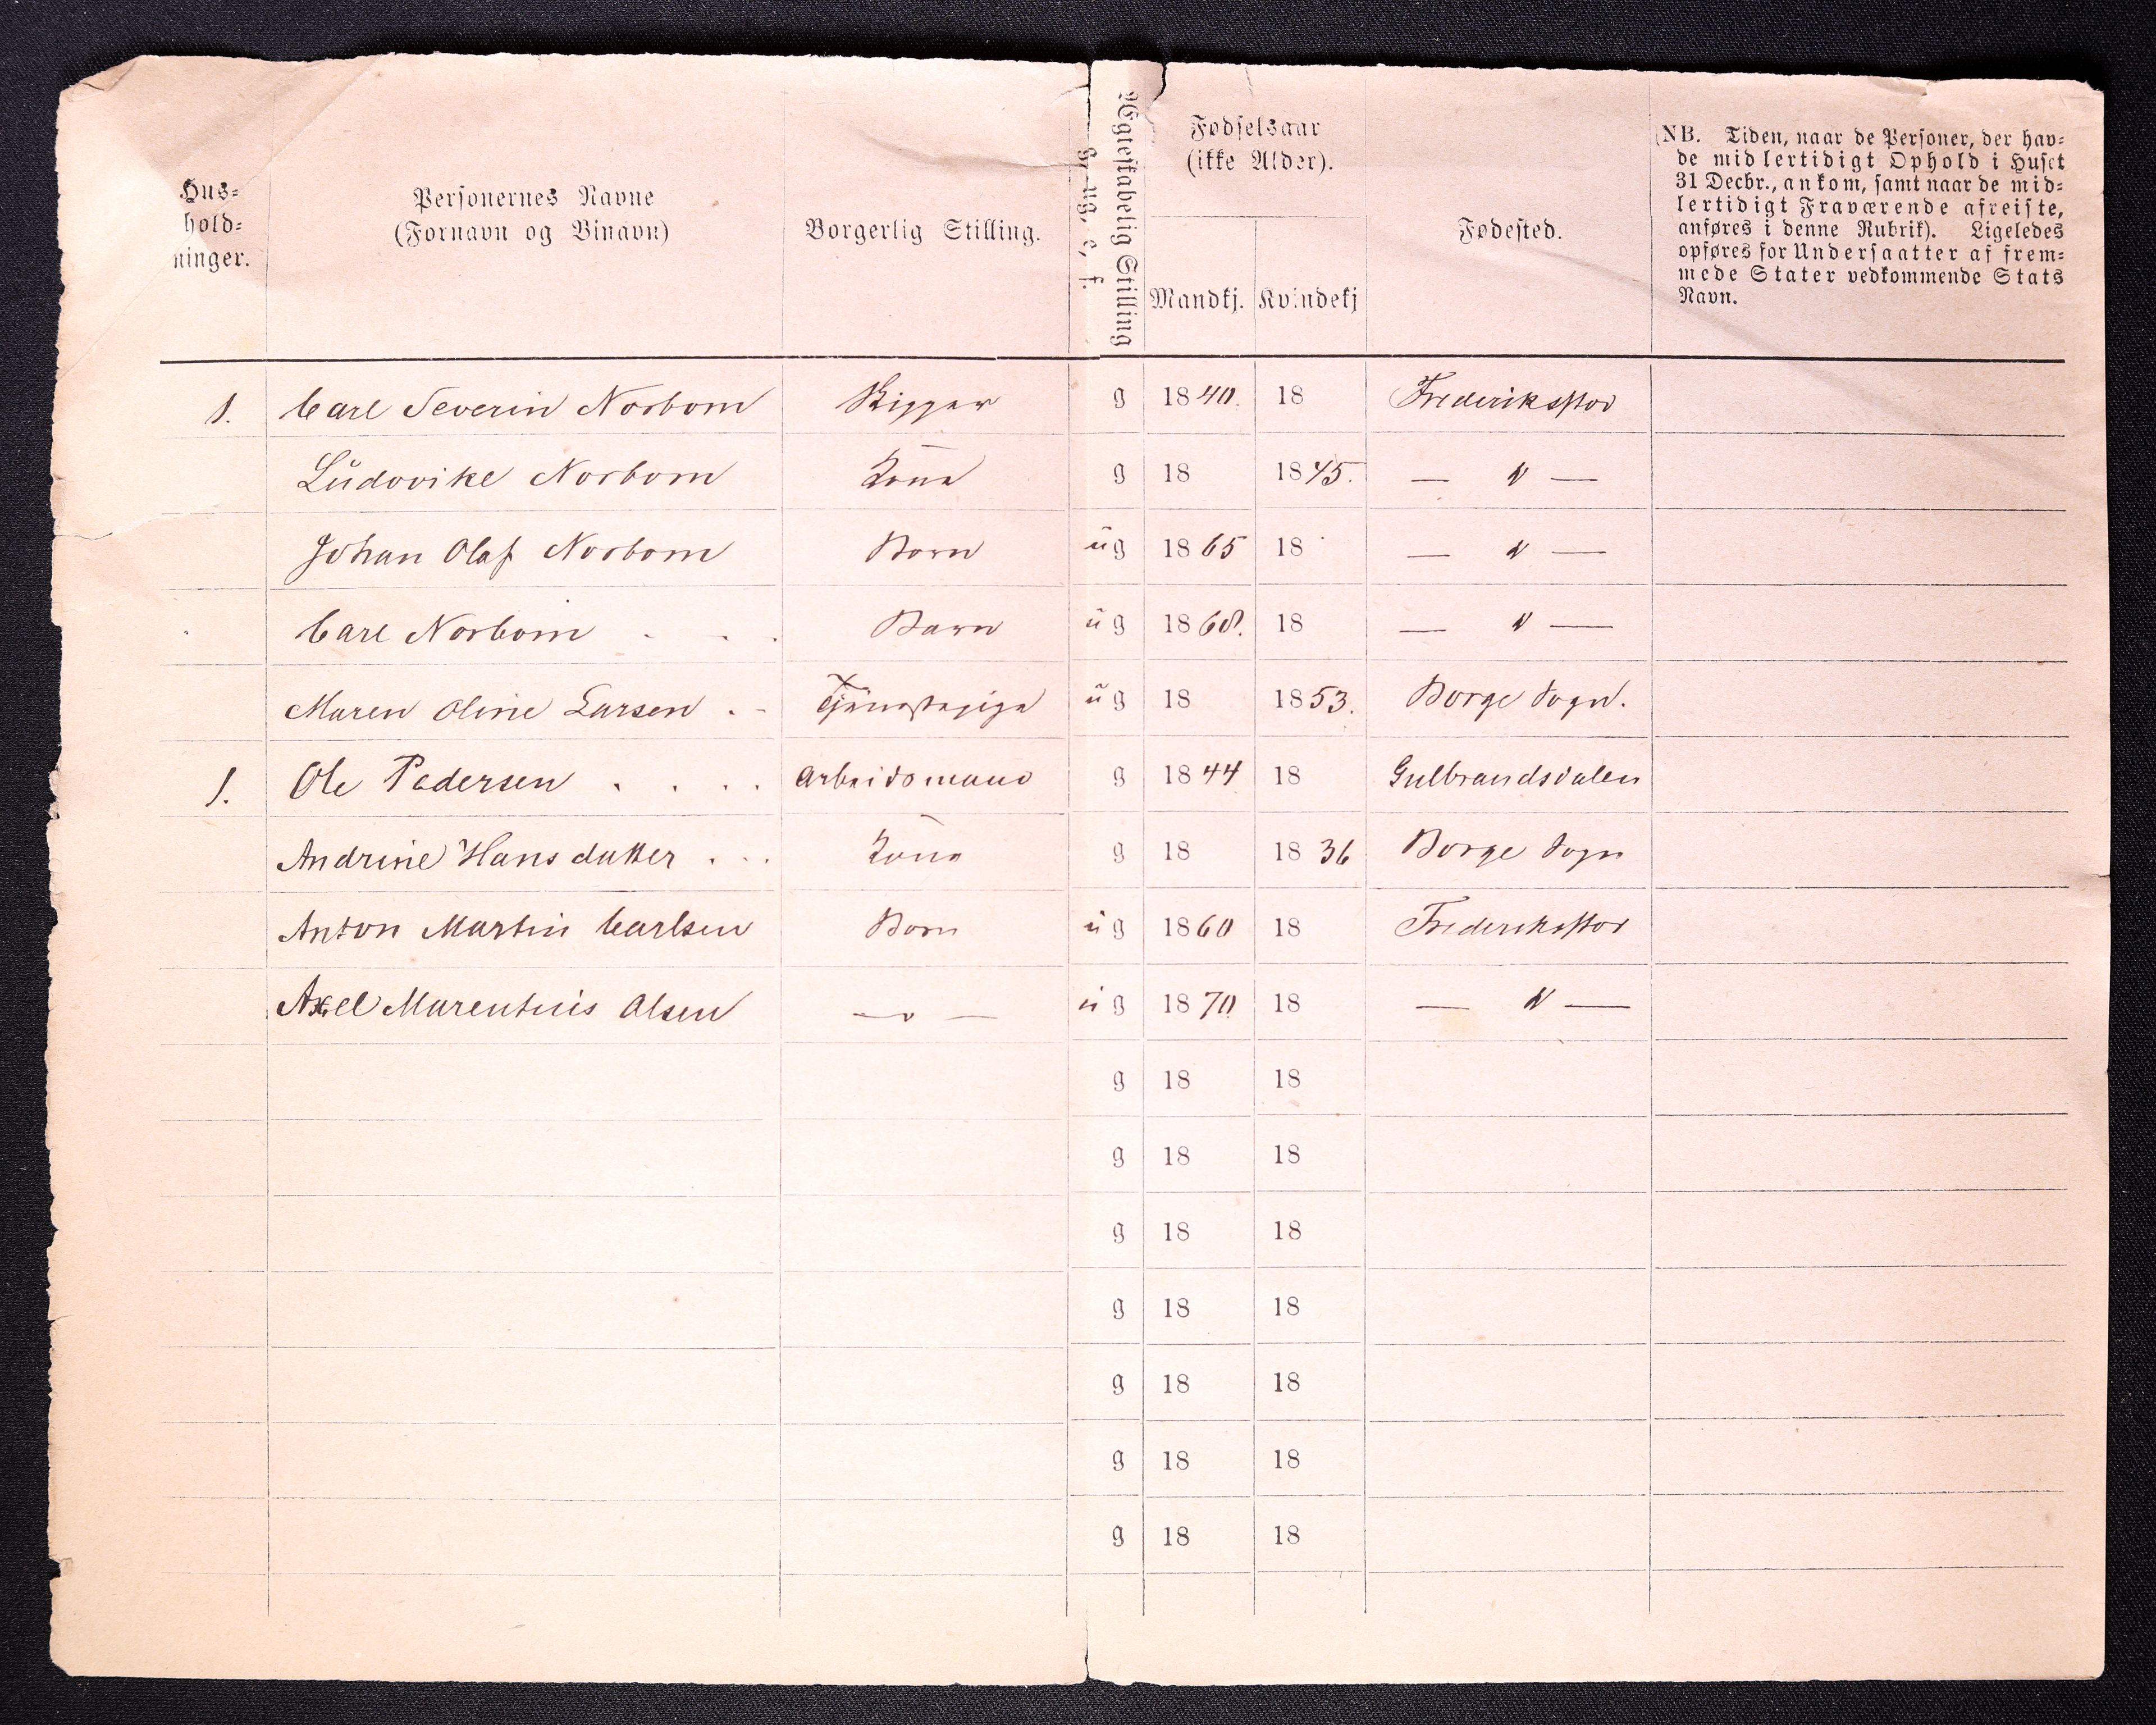 Hus-
hold-
ninger.
Personernes Navne
(Fornavn og Binavn)
Borgerlig Stilling.
Ægteskabelig Stilling
g, ug, e, f.
Fødselsaar
(ikke Alder).
Mandkj. Kvindekj
Fødested.
NB. Tiden, naar de Personer, der hav-
de midlertidigt Ophold i Huset
31 Decbr., ankom, samt naar de mid-
lertidigt Fraværende afreiste,
anføres i denne Rubrik). Ligeledes
opføres for Undersaatter af frem-
mede Stater vedkommende Stats
Navn.
1. Carl Severin Norbom Skipper g 1840. 18 Frederiksstad
Ludovike Norbom Kone g 18 1845. — " —
Johan Olaf Norbom Barn ug 1865 18 — " —
Carl Norbom . . . Barn ug 1868. 18 — " —
Maren Oline Larsen . - Tjenestepige ug 18 1853. Borge Sogn.
1. Ole Pedersen . . . . Arbeidsmand g 1844 18 Gulbrandsdalen
Andrine Hansdatter . . . Kone g 18 1836 Borge Sogn
Anton Martin Carlsen Barn ug 1860 18 Frederiksstad
Axel Marentius Olsen — " — ug 1870 18 — " —
g 18 18
g 18 18
g 18 18
g 18 18
g 18 18
g 18 18
g 18 18